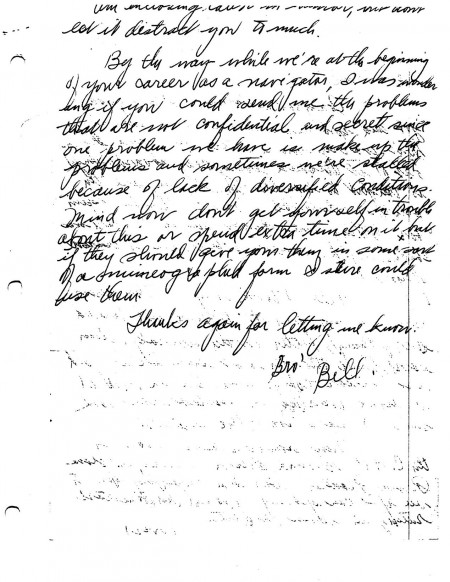 am enclosing
let it distract you to much.
By the way while we're at the beginning
of your career as a navigator, I was wonder
ing if you could send me the problems
that are not confidential and secret since
one problem we have is make up the
problems and sometimes we're stalled
because of lack of diversified conditions.
Mind now don't get yourself in trouble
about this or spend extra time on it but
if they should give you them in some sort
of a mimeographed form I sure could
use them.
Thanks again for letting me know.
Bro' Bill.